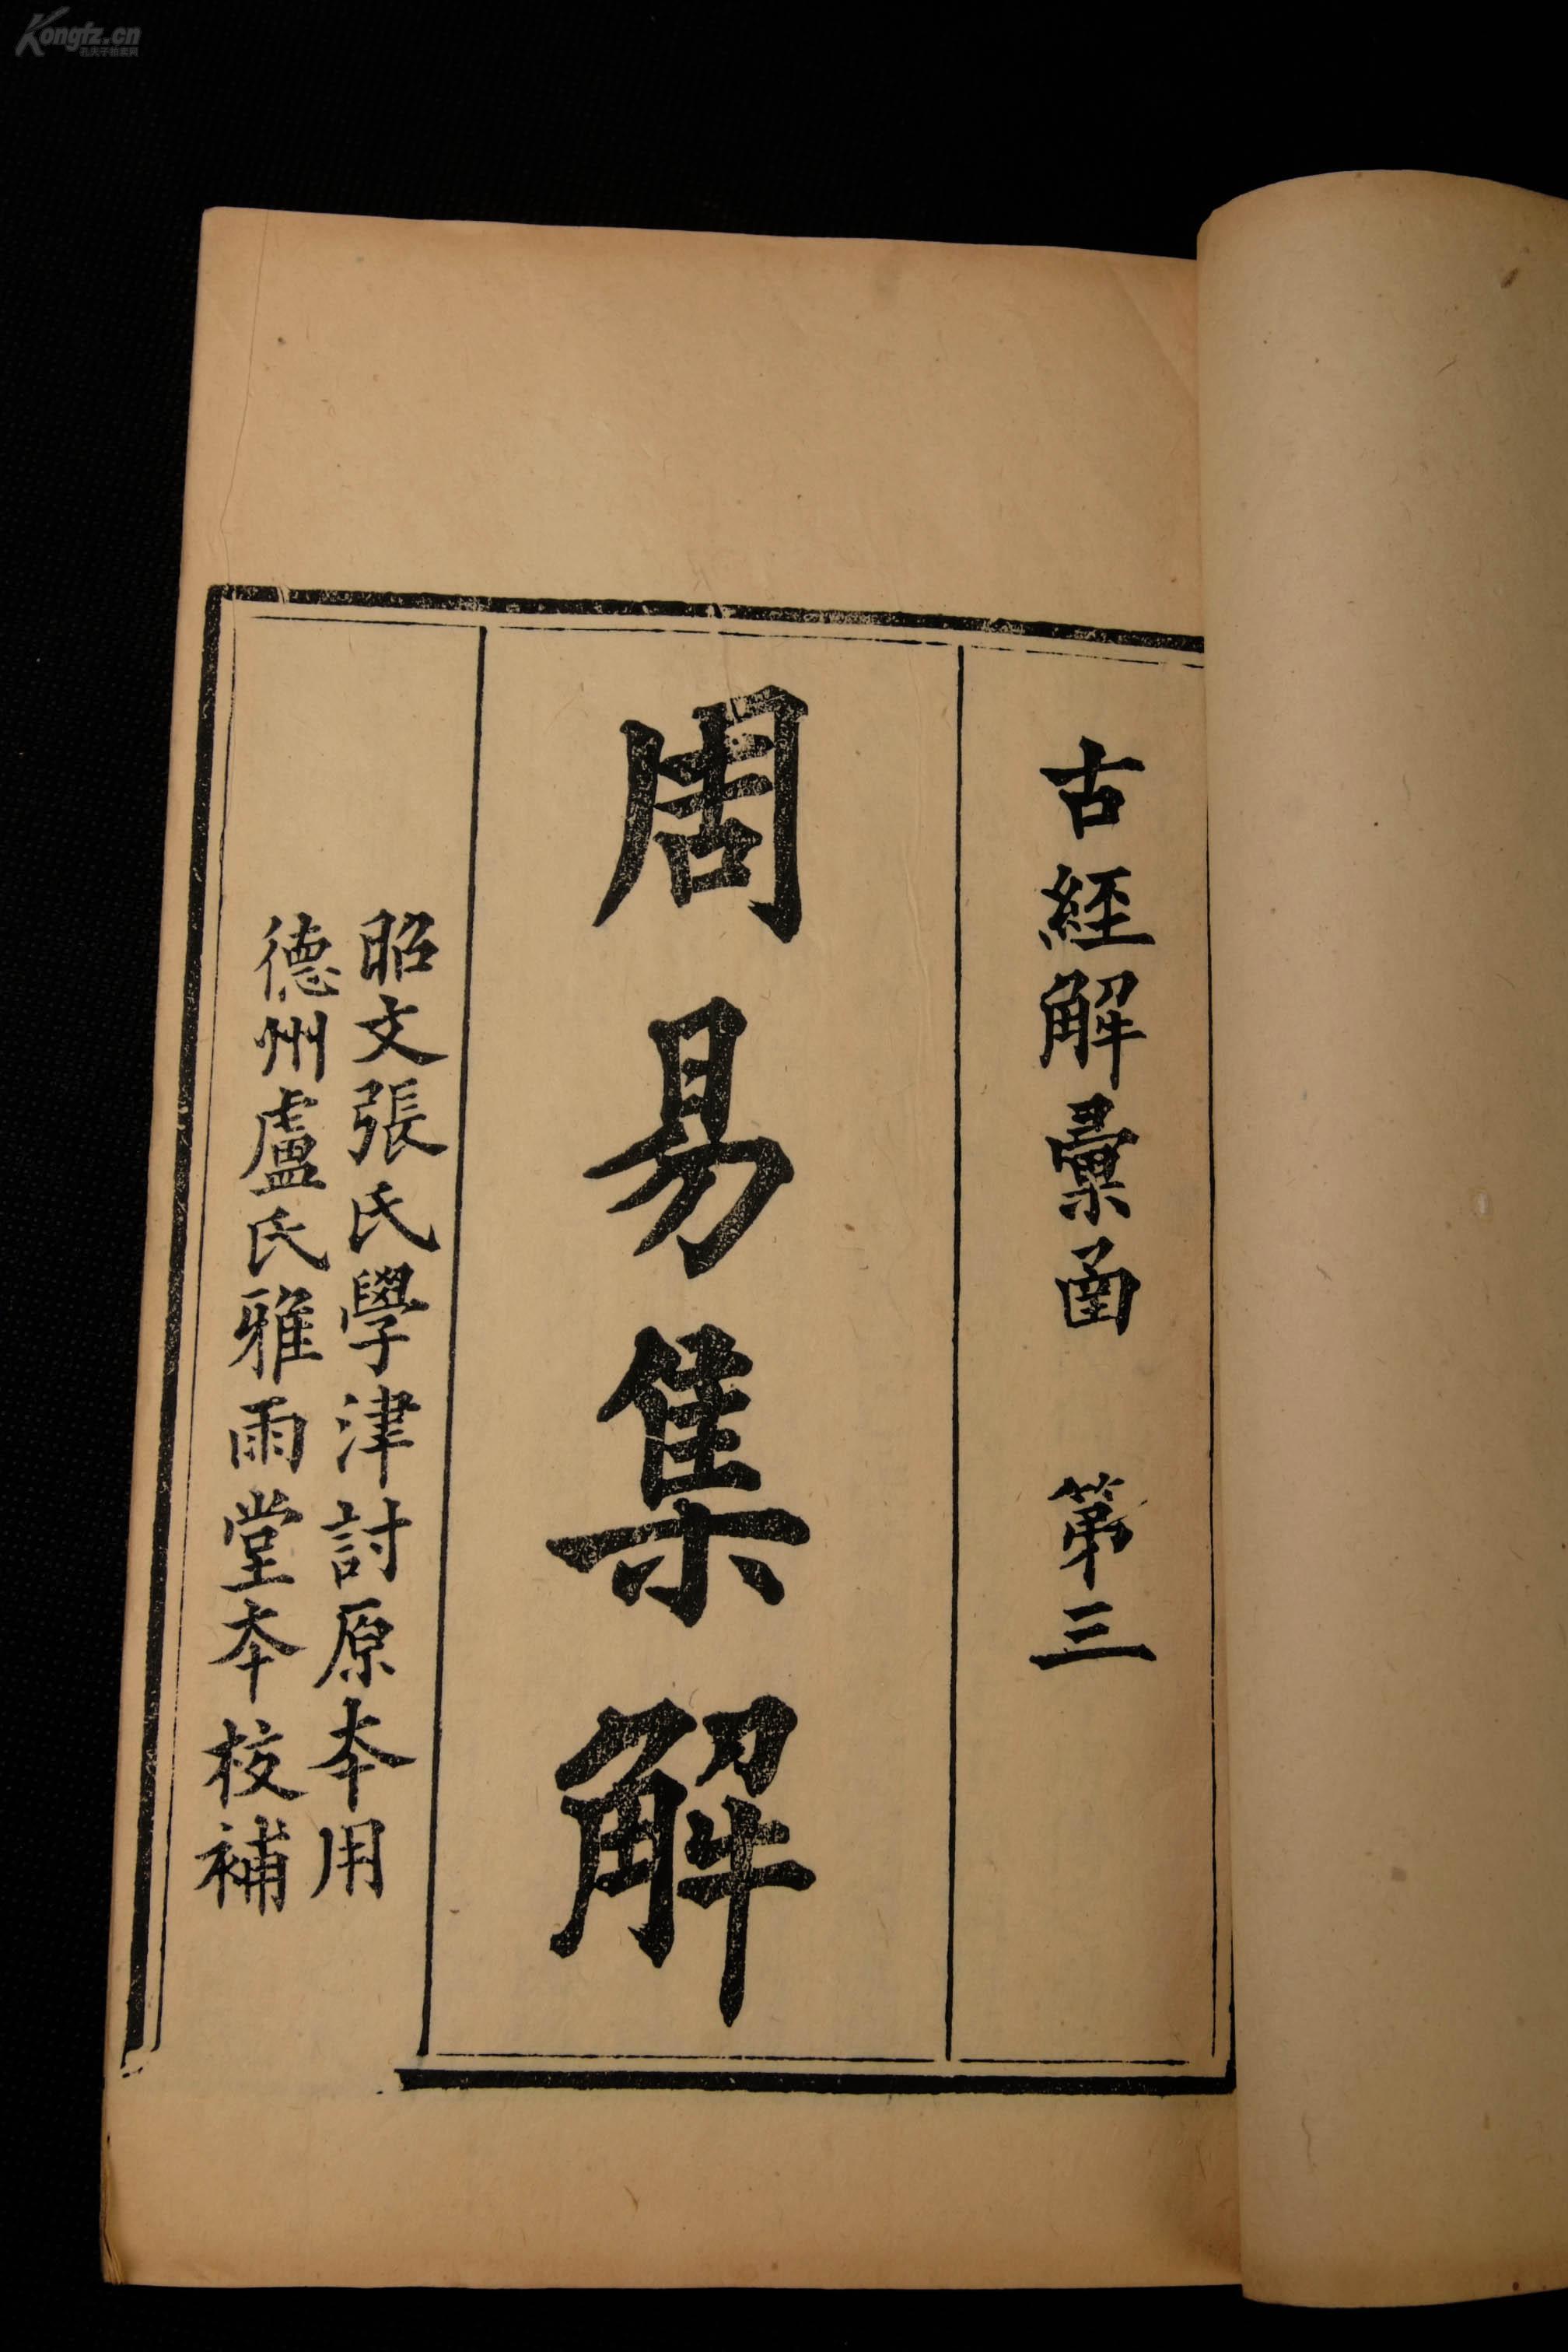 古經解彙函 第三
周易集解
昭文張氏學津討原本用
德州盧氏雅雨堂本校補
Kongfz.cn
孔夫子拍卖网